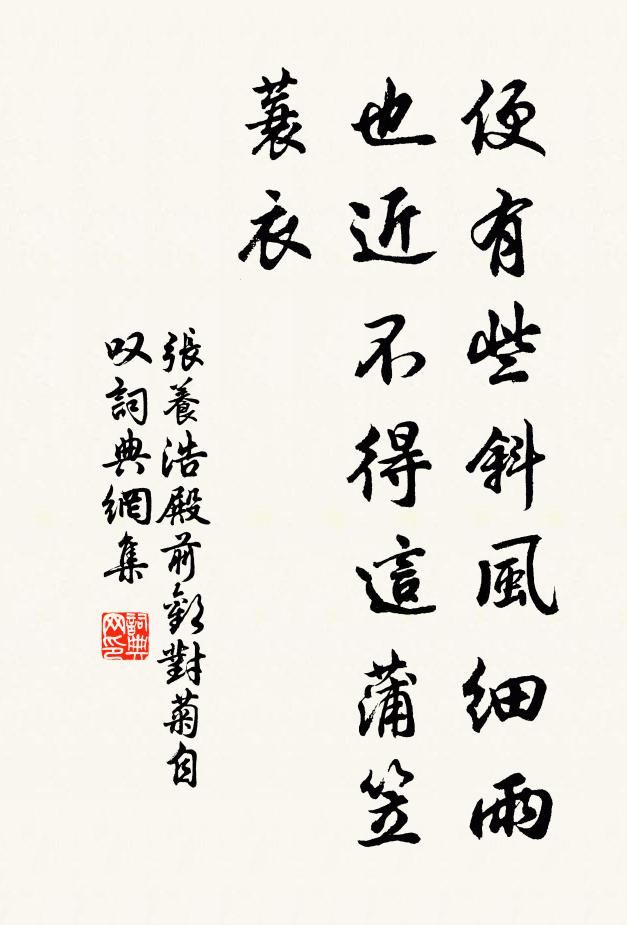 便有些斜風細雨
也近不得這蒲笠
蓑衣
張養浩殿前歡對菊自
叹詞典網集
詞典网印